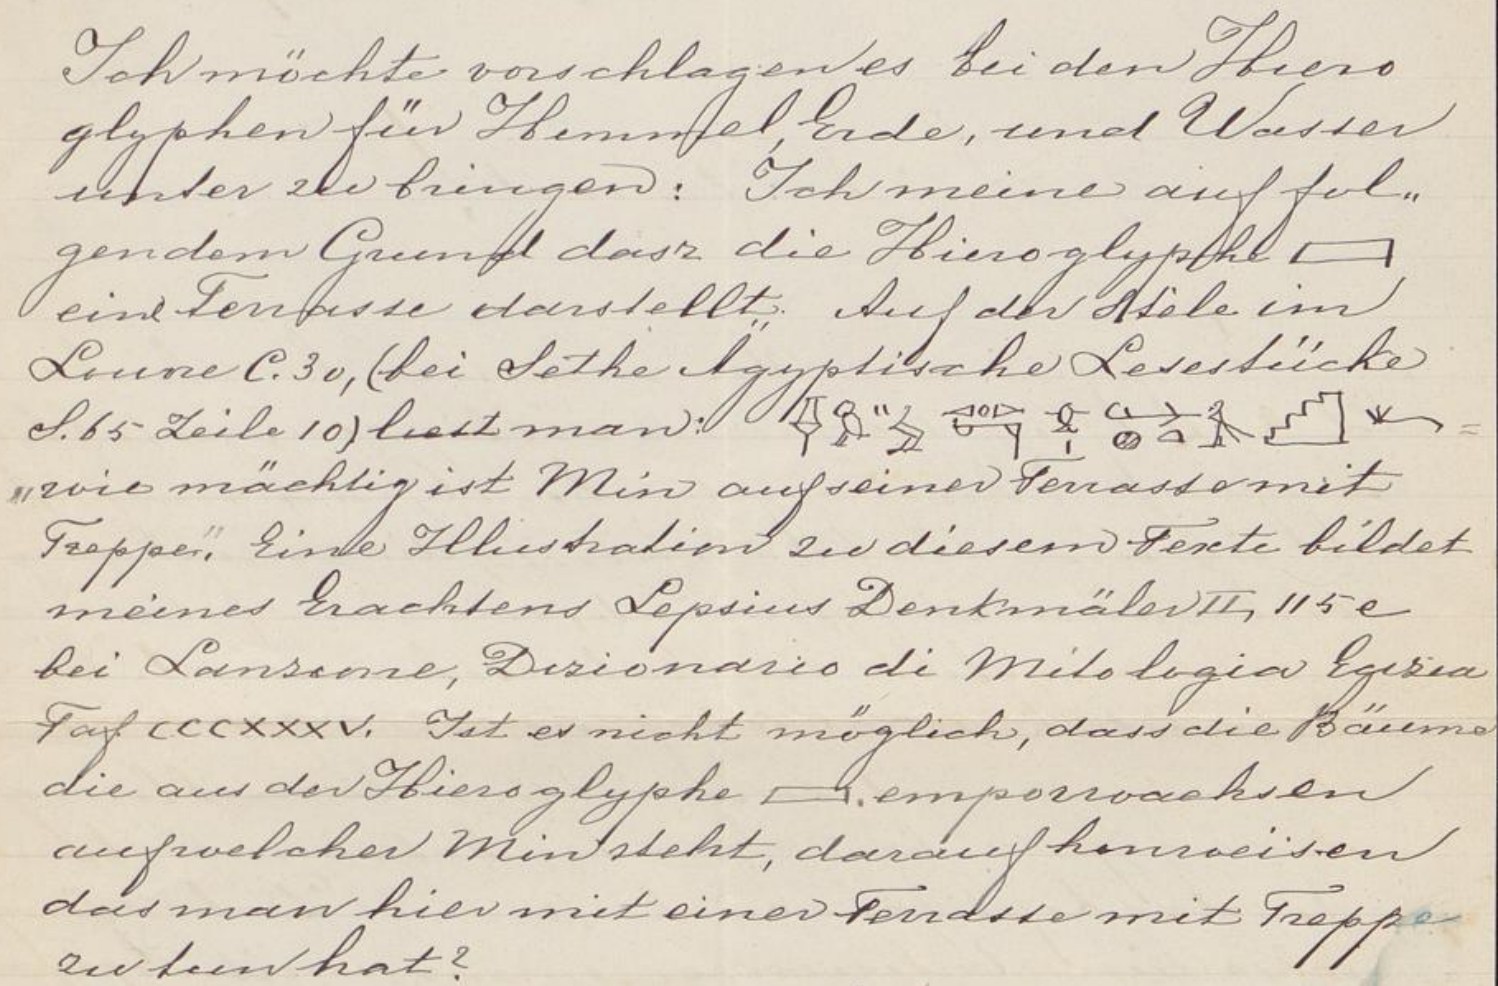 Ich möchte vorschlagen es bei den Hiero
glyphen für Himmel, Erde, und Wasser
unter zu bringen: Ich meine auf fol„
gendem Grund dasz die Hieroglyphe
eine Terrasse darstellt. Auf der Stele im
Louvre C. 30, (bei Sethe Ägyptische Lesestücke
S. 65 Zeile 10) liest man: =
„wie mächtig ist Min auf seiner Terrasse mit
Treppe". Eine Illustration zu diesem Texte bildet
meines Erachtens Lepsius Denkmäler II, 115 e
bei Lanzone, Dizionario di Mitologia Egizia
Taf CCCXXXV. Ist es nicht möglich, dass die Bäume
die aus der Hieroglyphe emporwachsen
auf welcher Min steht, darauf hinweisen
das man hier mit einer Terrasse mit Treppe
zu tun hat?